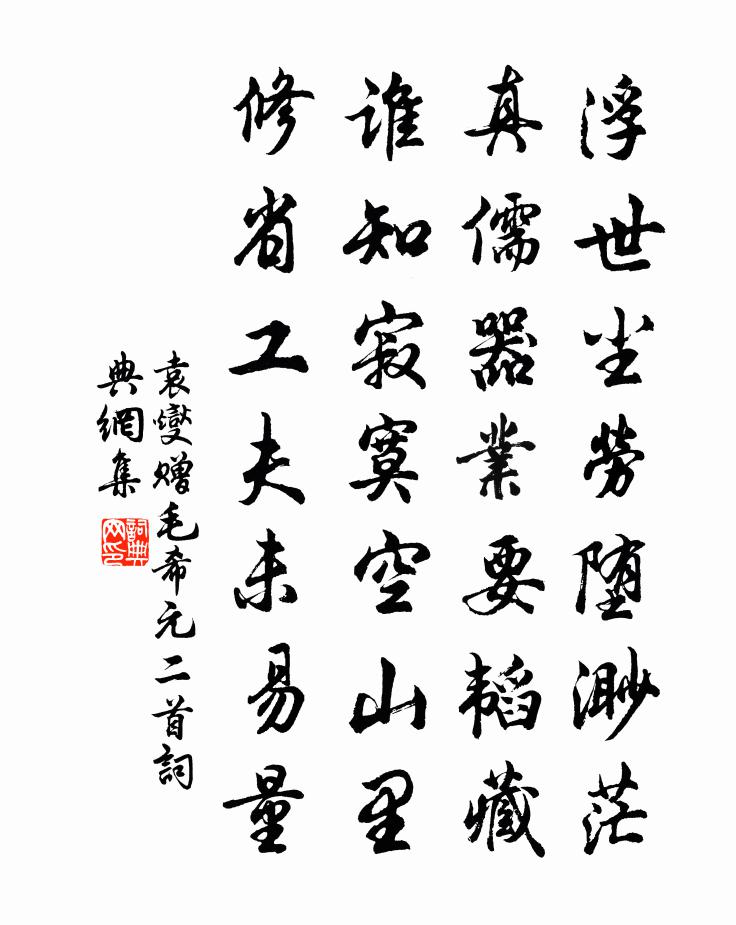 浮世尘劳堕渺茫
真儒器業要韬藏
谁知寂寞空山里
修省工夫未易量
袁燮赠毛希元二首詞
典網集
詞典
网印